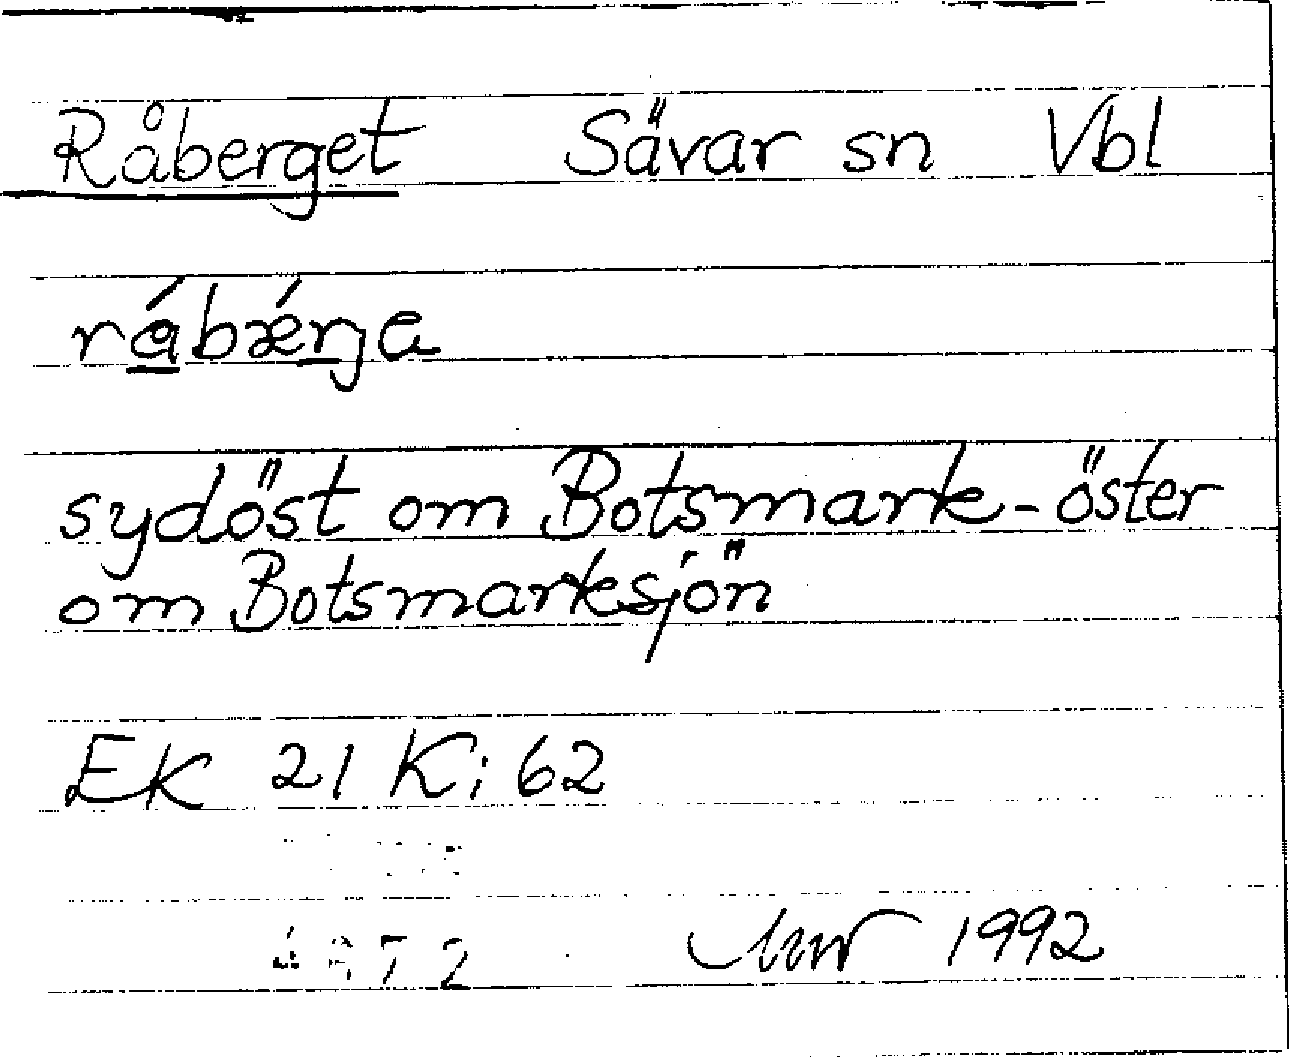 Råberget Sävar sn Vbl
rábǽrja
sydöst om Botsmark-öster
om Botsmarksjön
EK 21 Ki 62
1992